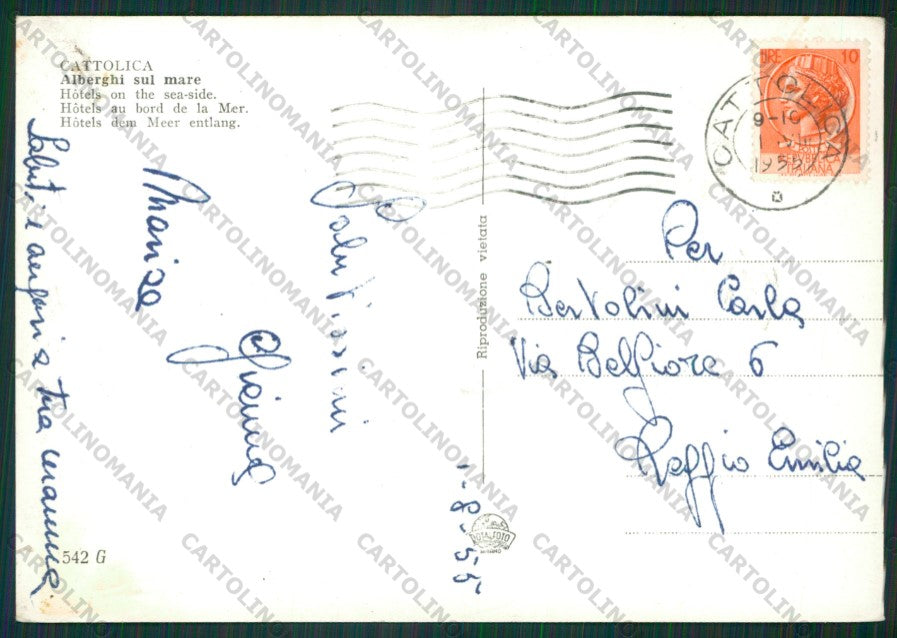 CATTOLICA
Alberghi sul mare
Hôtels on the sea-side.
Hôtels au bord de la Mer.
Hôtels dem Meer entlang.
Saluti e auguri a tua mamma
Marisa
Gianna
Salutissimi
1-8-55
542 G
Riproduzione vietata
ROTALFOTO
LIRE 10
CATTOLICA
9-10
1955
ITALIANA
Per
Bertolini Carla
Via Belfiore 6
Reggio Emilia
CARTOLINOMANIA